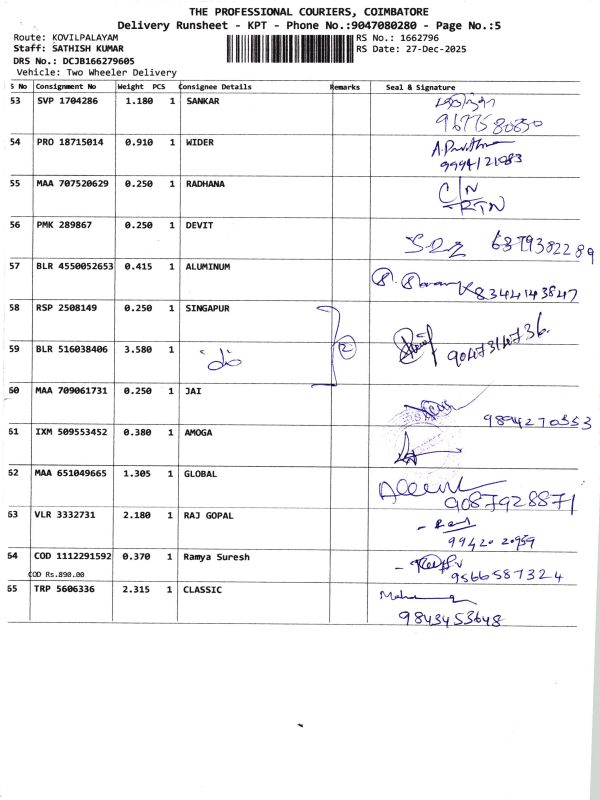 THE PROFESSIONAL COURIERS, COIMBATORE
Delivery Runsheet - KPT - Phone No.:9047080280 - Page No.:5
Route: KOVILPALAYAM RS No.: 1662796
Staff: SATHISH KUMAR RS Date: 27-Dec-2025
DRS No.: DCJB166279605
Vehicle: Two Wheeler Delivery
S No Consignment No Weight PCS Consignee Details Remarks Seal & Signature
53 SVP 1704286 1.180 1 SANKAR
9677580850
54 PRO 18715014 0.910 1 WIDER
9994121083
55 MAA 707520629 0.250 1 RADHANA C/N
RTN
56 PMK 289867 0.250 1 DEVIT
6379382289
57 BLR 4550052653 0.415 1 ALUMINUM
8344143847
58 RSP 2508149 0.250 1 SINGAPUR
2
9047314736
59 BLR 516038406 3.580 1 do
60 MAA 709061731 0.250 1 JAI
9894270353
61 IXM 509553452 0.380 1 AMOGA
62 MAA 651049665 1.305 1 GLOBAL
9087928871
63 VLR 3332731 2.180 1 RAJ GOPAL
99420 20959
64 COD 1112291592 0.370 1 Ramya Suresh
9566587324
COD Rs.890.00
65 TRP 5606336 2.315 1 CLASSIC
9843453648